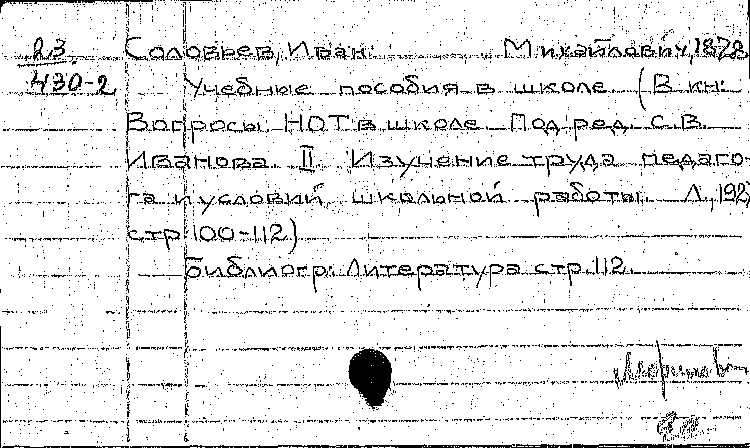 23
430-2
Соловьев, Иван Михайлович, 1878
Учебные пособия в школе. (В кн:
Вопросы НОТ в школе. Под ред. С.В.
Иванова. II. Изучение труда педаго-
га и условий школьной работы. Л., 192
стр 100-112)
Библиогр: Литература стр. 112.